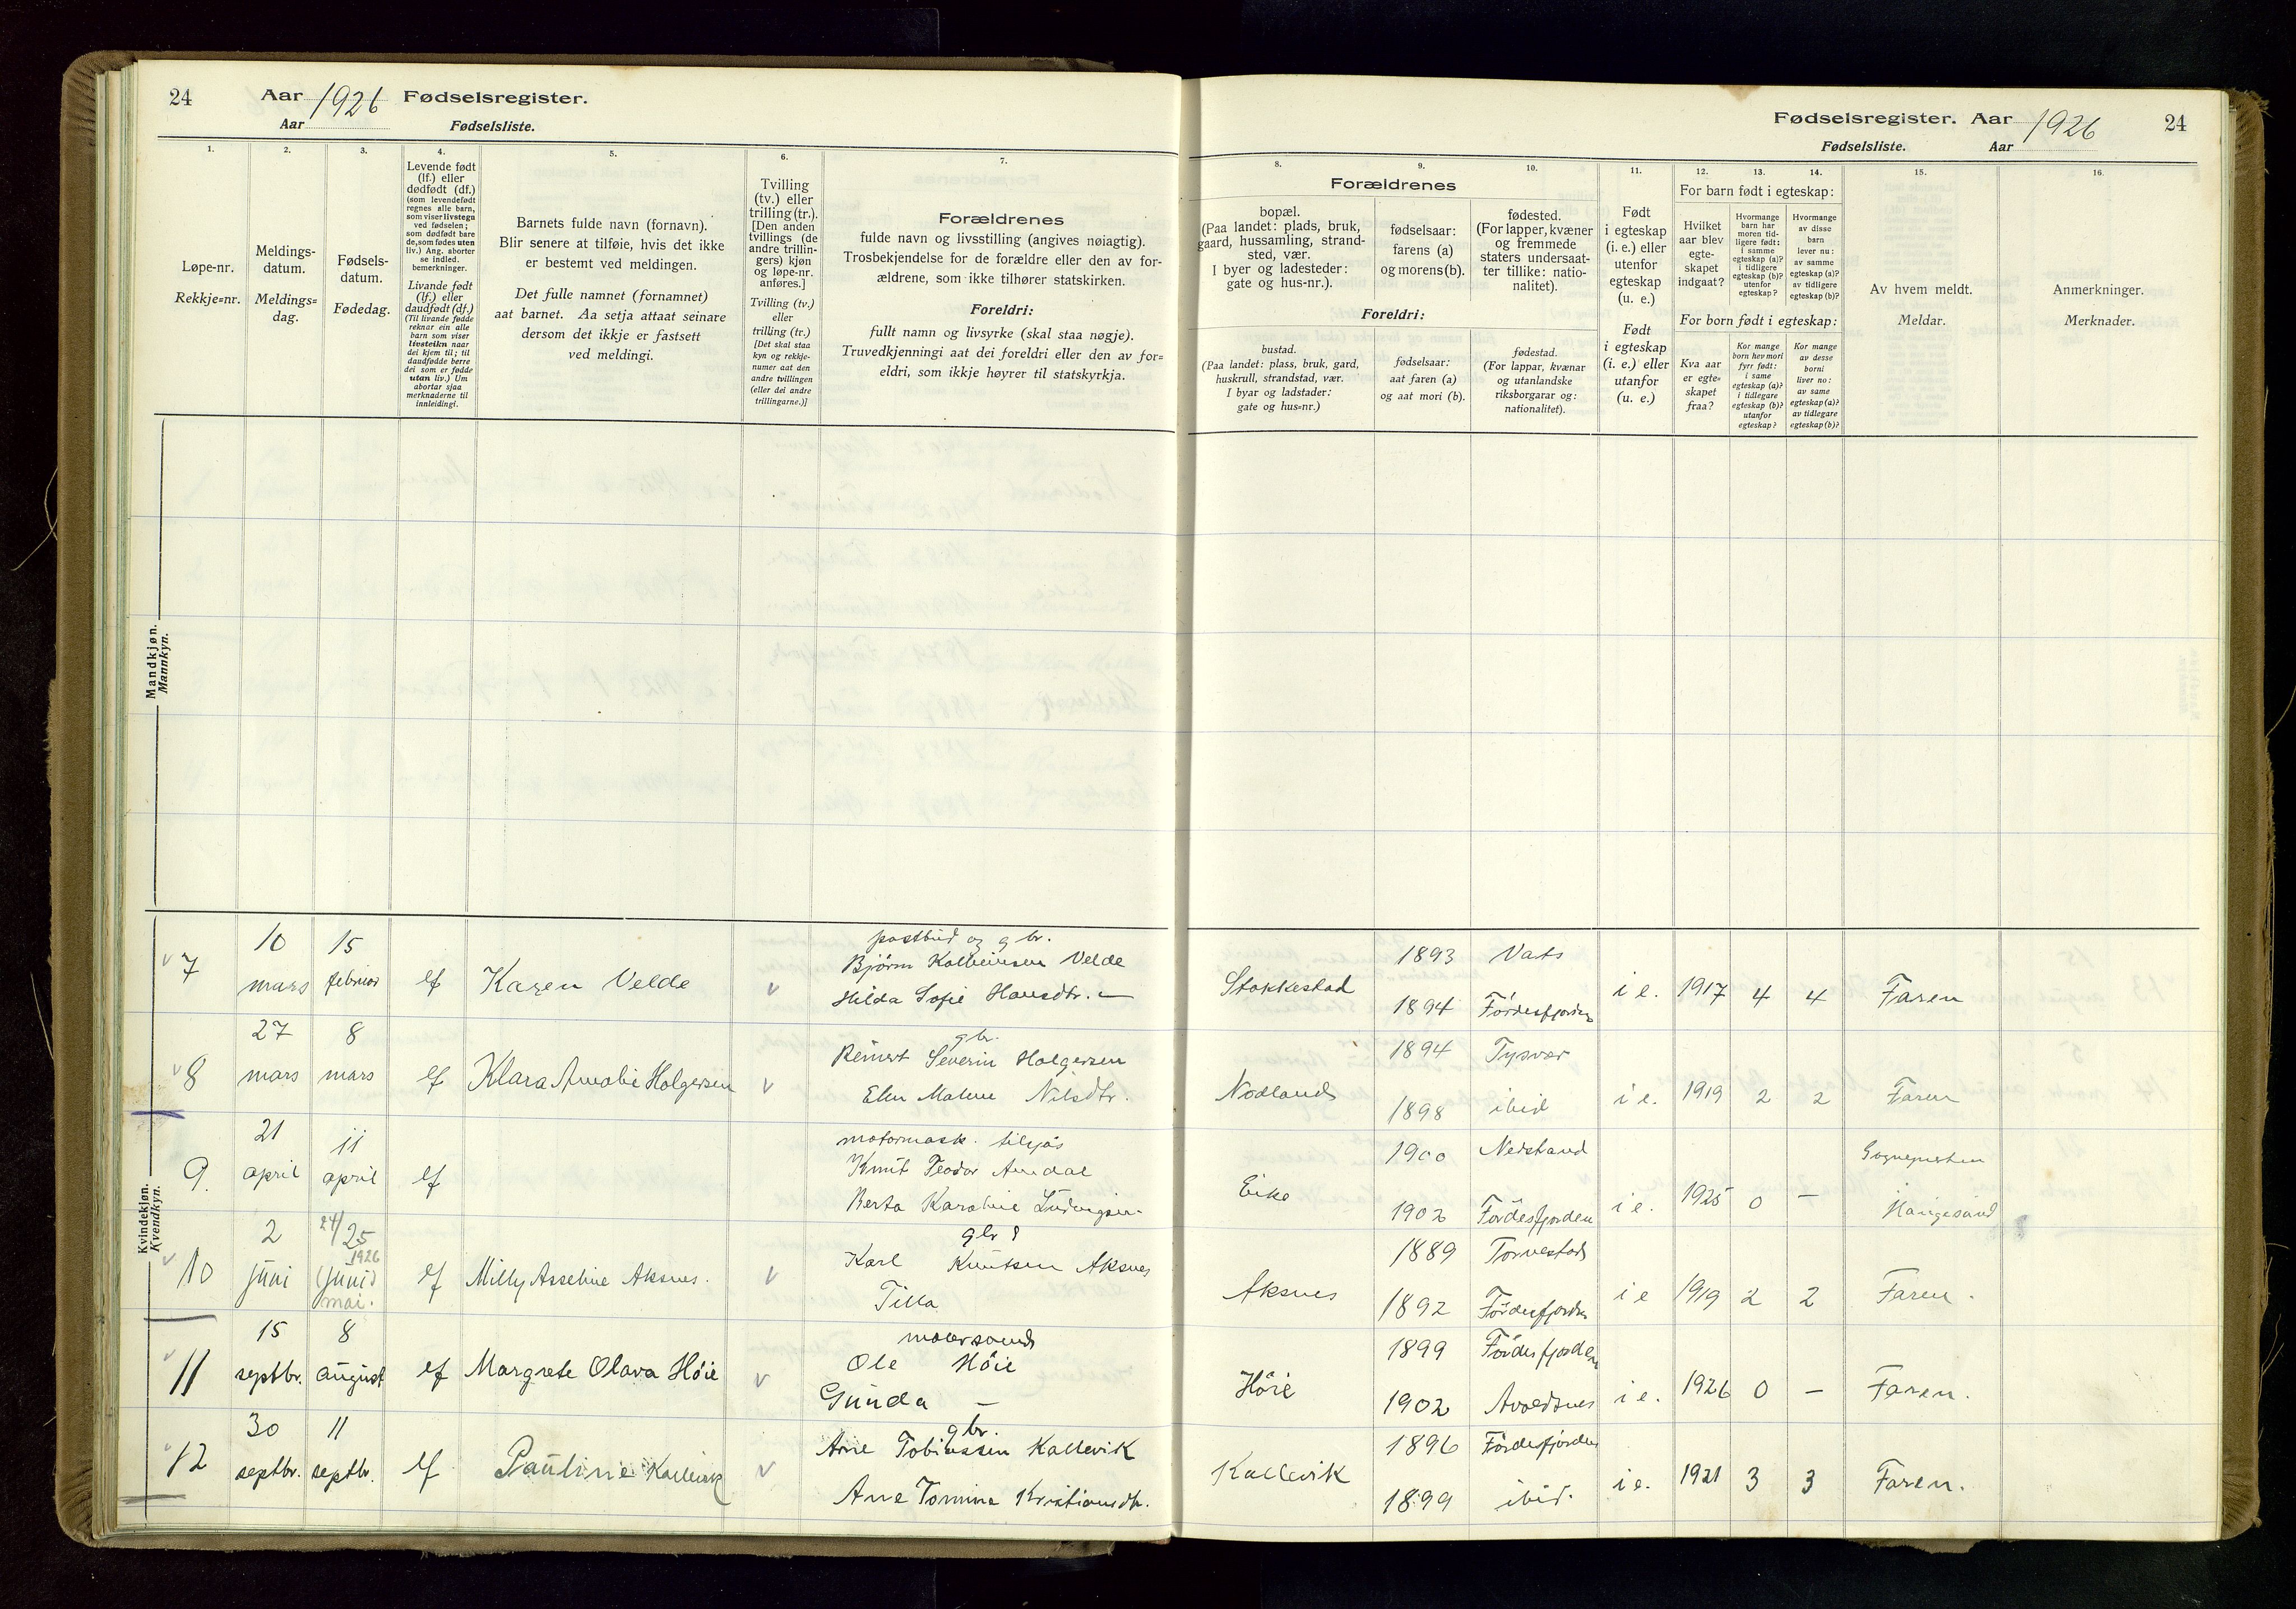 24
Aar 1926 Fødselsregister.
Aar Fødselsliste.
1.
2.
3.
4.
5.
6.
7.
Løpe-nr.
Rekkje=nr.
Meldings-
datum.
Meldings=
dag.
Fødsels-
datum.
Fødedag.
Levende født
(lf.) eller
dødfødt (df.)
(som levendefødt
regnes alle barn,
som viser livstegn
ved fødselen;
som dødfødt bare
de, som fødes uten
liv.) Ang. aborter
se indled.
bemerkninger.
Livande født
(lf.) eller
daudfødt (df.)
(Til livande fødde
reknar ein alle
barn som viser
livsteikn naar
dei kjem til; til
daudfødde berre
dei som er fødde
utan liv.) Um
abortar sjaa
merknaderne til
innleidingi.
Barnets fulde navn (fornavn).
Blir senere at tilføie, hvis det ikke
er bestemt ved meldingen.
Det fulle namnet (fornamnet)
aat barnet. Aa setja attaat seinare
dersom det ikkje er fastsett
ved meldingi.
Tvilling
(tv.) eller
trilling (tr.).
[Den anden
tvillings (de
andre trillin-
gers) kjøn
og løpe-nr.
anføres.]
Tvilling (tv.)
eller
trilling (tr.)
[Det skal staa
kyn og rekkje-
numer aat den
andre tvillingen
(eller dei andre
trillingarne.)]
Forældrenes
fulde navn og livsstilling (angives nøiagtig).
Trosbekjendelse for de forældre eller den av for-
ældrene, som ikke tilhører statskirken.
Foreldri:
fullt namn og livsyrke (skal staa nøgje).
Truvedkjenningi aat dei foreldri eller den av for=
eldri, som ikkje høyrer til statskyrkja.
Mandkjøn.
Mannkyn.
Kvindekjøn.
Kvendkyn.
7
10
mars
15
februar
lf
Karen Velde
postbud og gbr.
Bjørn Velde
Hilda Sofie Hansdtr. —
8
27
mars
8
mars
lf
Klara Amalie Holgersen
gbr.
Reinert Severin Holgersen
Elen Malene Nilsdtr.
9.
21
april
11
april
lf
motormask. tilsjøs
Knut Teodor Amdal
Berta Karoline Ludvigsen
10
2
juni
24/25
1926
(juni)
mai.
lf
Milly Asseline Aksnes.
gbr
Karl Knutsen Aksnes
Tilla
11
15
septbr.
8
august
lf
Margrete Olava Höie
Ole Höie
Gunda —
12
30
septbr.
11
septbr.
lf
Pauline Kallevik
gbr.
Arne Tobiassen Kallevik
Ane Tomine Kristiansdtr.
Fødselsregister. Aar 1926
24
Fødselsliste. Aar
8.
9.
10.
11.
12.
13.
14.
15.
16.
Forældrenes
bopæl.
(Paa landet: plads, bruk,
gaard, hussamling, strand-
sted, vær.
I byer og ladesteder:
gate og hus-nr.).
fødselsaar:
farens (a)
og morens (b).
fødested.
(For lapper, kvæner
og fremmede
staters undersaat-
ter tillike: natio-
nalitet).
Foreldri:
bustad.
(Paa landet: plass, bruk, gard,
huskrull, strandstad, vær.
I byar og ladstader:
gate og hus=nr.)
fødselsaar:
aat faren (a)
og aat mori (b).
fødestad.
(For lappar, kvænar
og utanlandske
riksborgarar og:
nationalitet).
Født
i egteskap
(i. e.) eller
utenfor
egteskap
(u. e.)
Født
i egteskap
(i. e.) eller
utanfor
(u. e.)
For barn født i egteskap:
Hvilket
aar blev
egte-
skapet
indgaat?
Hvormange
barn har
moren tid-
ligere født:
i samme
egteskap (a)?
i tidligere
egteskap (b)?
utenfor
egteskap?
Hvormange
av disse
barn
lever nu:
av samme
egteskap (a)?
av tidligere
egteskap (b)?
For born født i egteskap:
Kva aar
er egte=
skapet
fraa?
Kor mange
born hev mori
fyrr født:
i same
egteskap (a)?
i tidlegare
egteskap (b)?
utanfor
egteskap?
Kor mange
av desse
borni
liver no:
av same
egteskap (a)?
av tidlegare
egteskap (b)?
Av hvem meldt.
Meldar.
Anmerkninger.
Merknader.
Stakkestad
1893
1894
Vats
Fördesfjorden
i e.
1917
4
4
Faren
Nodland
1894
1898
Tysvær
ibid
i e.
1919
2
2
Faren
Eike
1900
1902
Nedstrand
Fördesfjorden
i e.
1925
0
—
Sogneprsten
Haugesund
Aksnes
1889
1892
Torvestad
Fördesfjorden
i e
1919
2
2
Faren.
Höie
1899
1902
Fördesfjorden
Avaldsnes
i e.
1926
0
—
Faren.
Kallevik
1896
1899
Fördesfjorden
ibid.
i e.
1921
3
3
Faren.